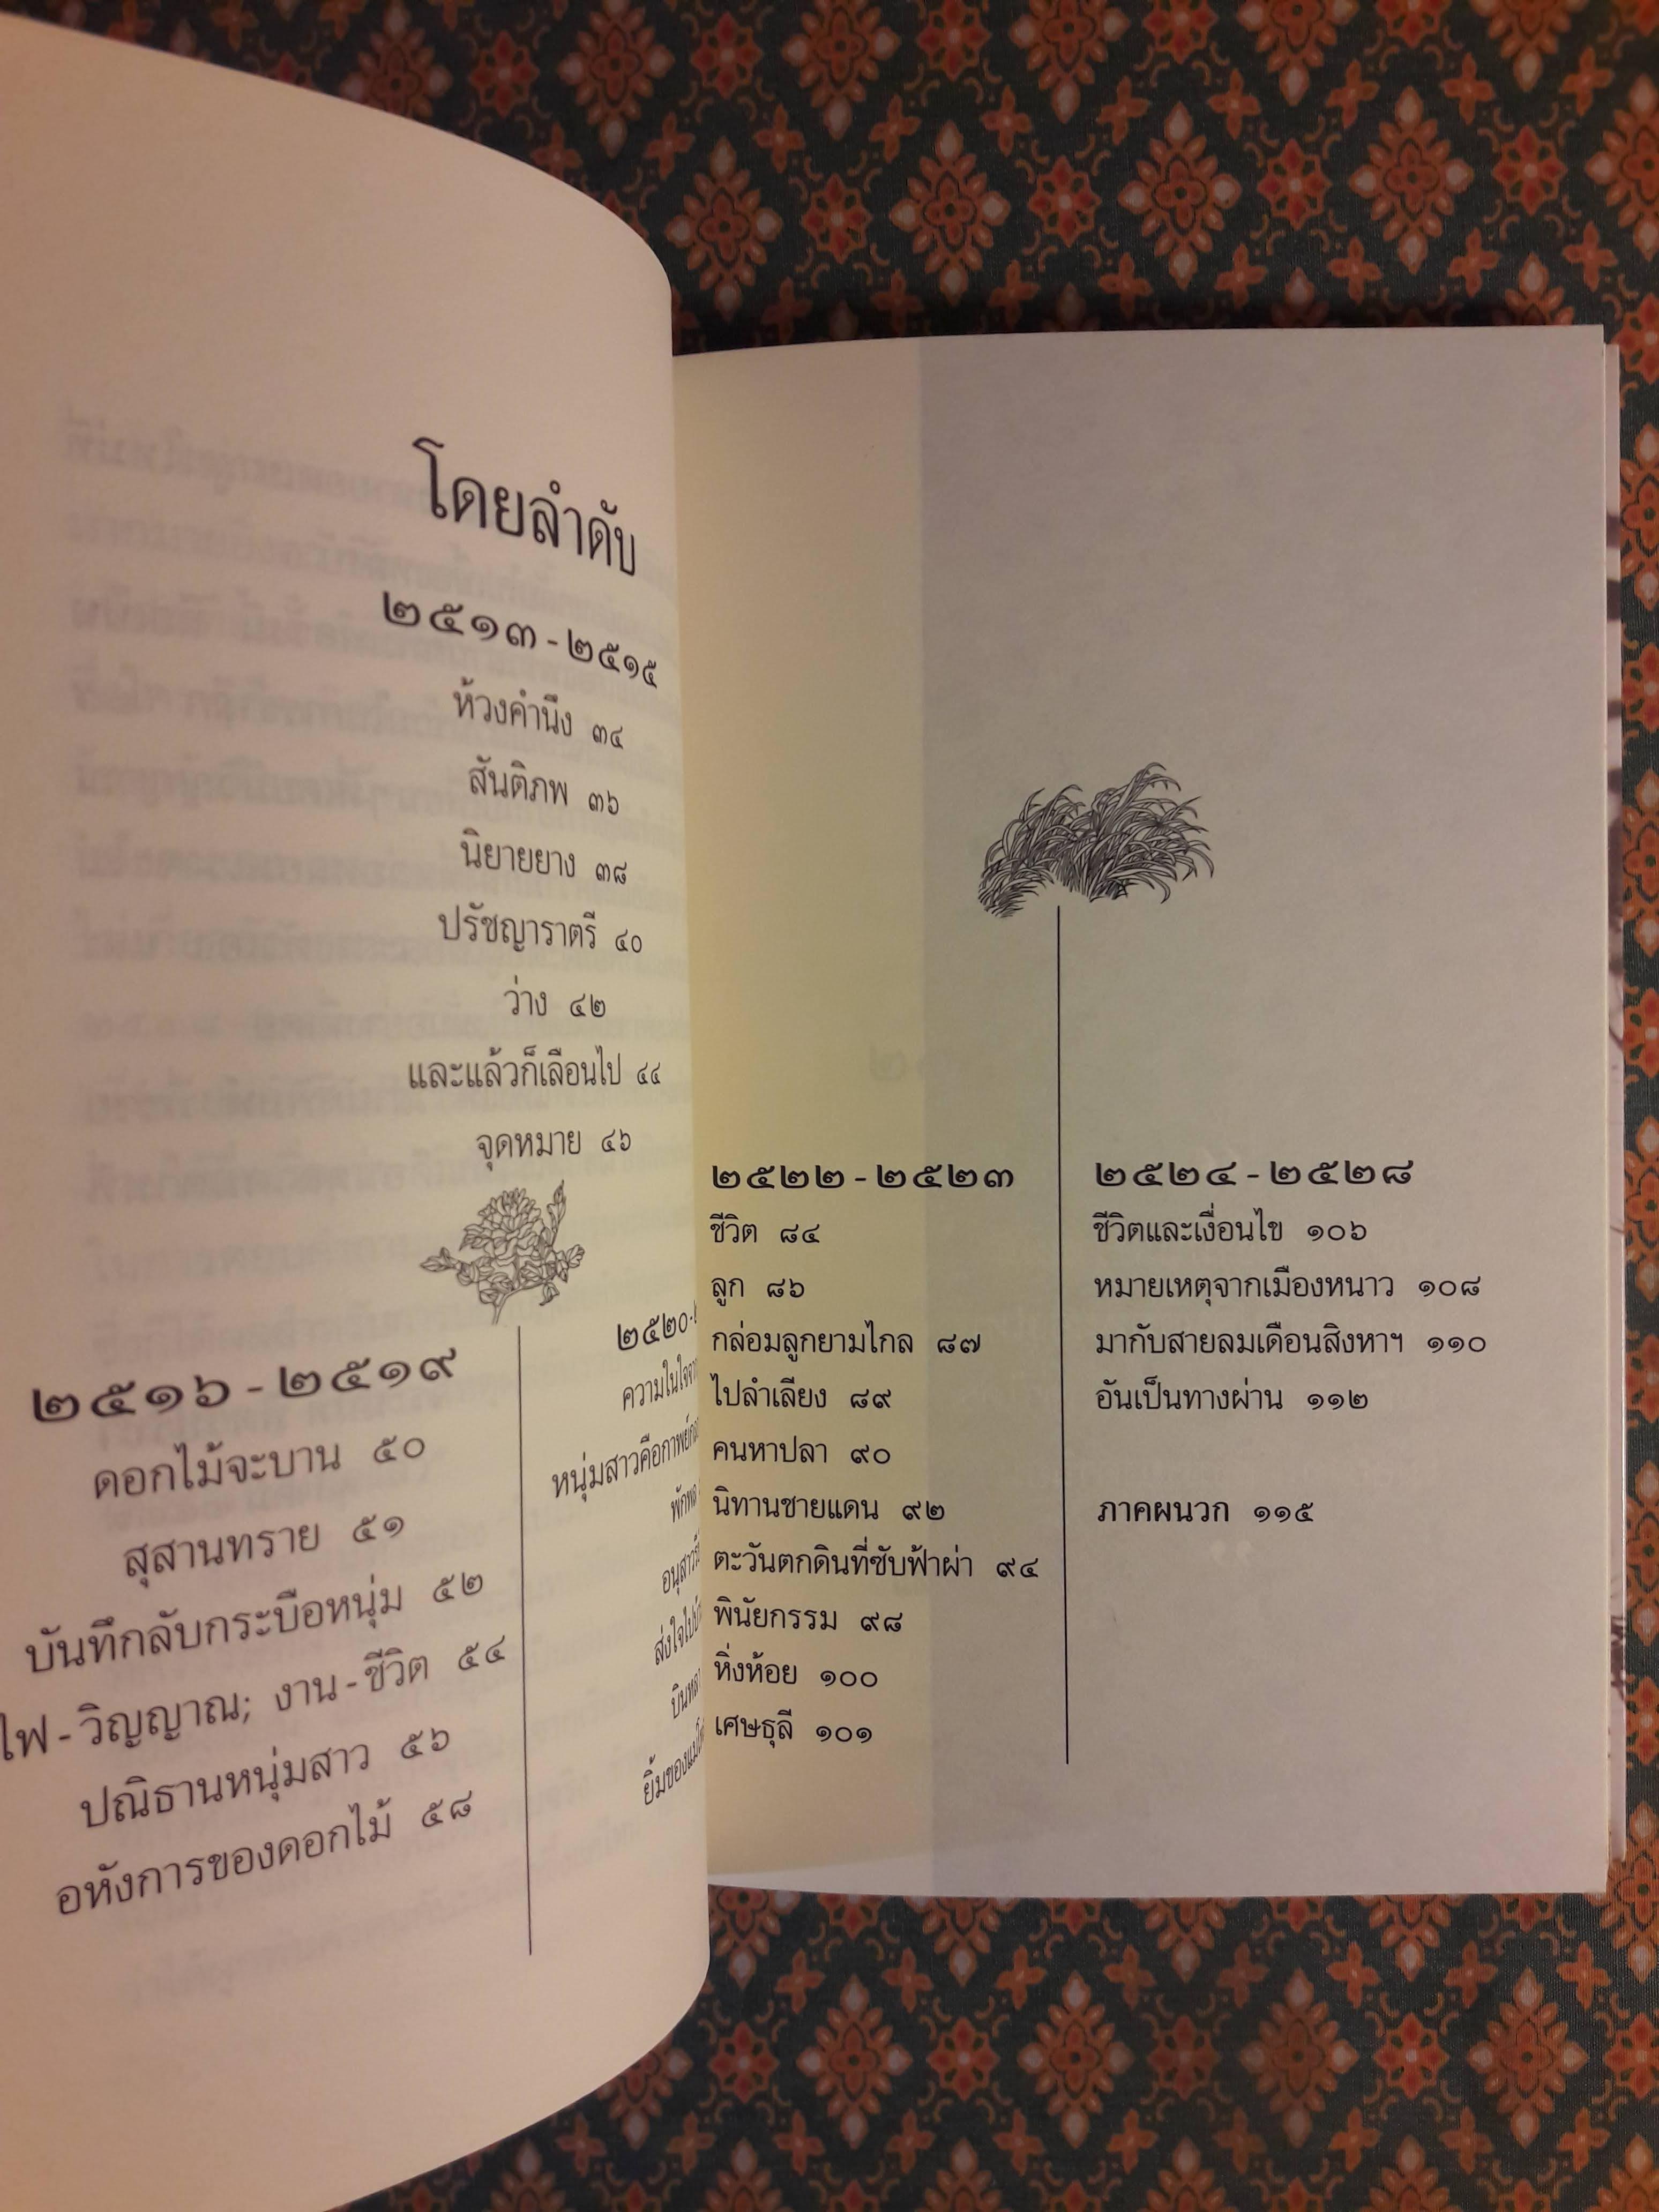 โดยลำดับ
๒๕๑๓ - ๒๕๑๕
ห้วงคำนึง ๓๔
สันติภพ ๓๖
นิยายยาง ๓๘
ปรัชญาราตรี ๔๐
ว่าง ๔๒
และแล้วก็เลือนไป ๔๔
จุดหมาย ๔๖
๒๕๑๖ - ๒๕๑๙
ดอกไม้จะบาน ๕๐
สุสานทราย ๕๑
บันทึกลับกระบือหนุ่ม ๕๒
ไฟ - วิญญาณ; งาน - ชีวิต ๕๔
ปณิธานหนุ่มสาว ๕๖
อหังการของดอกไม้ ๕๘
๒๕๒๐-
ความในใจ
หนุ่มสาวคือกาพย์
อนุสาวรีย์
ส่งใจไป
ยิ้มของแม่
๒๕๒๒ - ๒๕๒๓
ชีวิต ๘๔
ลูก ๘๖
กล่อมลูกยามไกล ๘๗
ไปลำเลียง ๘๙
คนหาปลา ๙๐
นิทานชายแดน ๙๒
ตะวันตกดินที่ซับฟ้าผ่า ๙๔
พินัยกรรม ๙๘
หิ่งห้อย ๑๐๐
เศษธุลี ๑๐๑
๒๕๒๔ - ๒๕๒๘
ชีวิตและเงื่อนไข ๑๐๖
หมายเหตุจากเมืองหนาว ๑๐๘
มากับสายลมเดือนสิงหาฯ ๑๑๐
อันเป็นทางผ่าน ๑๑๒
ภาคผนวก ๑๑๕